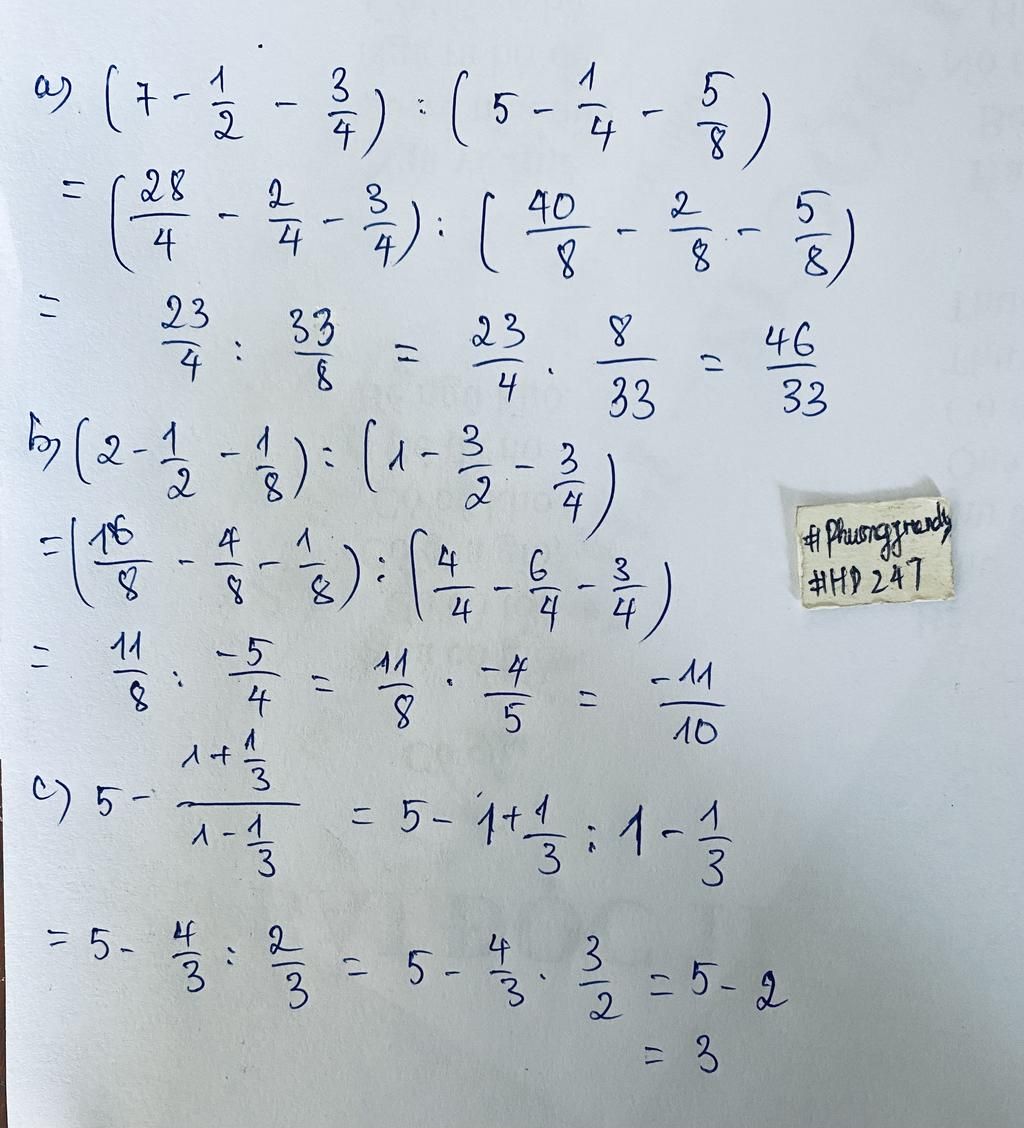 a) (7 - 1/2 - 3/4) : (5 - 1/4 - 5/8)
= (28/4 - 2/4 - 3/4) : (40/8 - 2/8 - 5/8)
= 23/4 : 33/8 = 23/4 . 8/33 = 46/33
b) (2 - 1/2 - 1/8) : (1 - 3/2 - 3/4)
= (16/8 - 4/8 - 1/8) : (4/4 - 6/4 - 3/4)
#HD 247
= 11/8 : -5/4 = 11/8 . -4/5 = -11/10
c) 5 - (1 + 1/3)/(1 - 1/3) = 5 - 1 + 1/3 : 1 - 1/3
= 5 - 4/3 : 2/3 = 5 - 4/3 . 3/2 = 5 - 2
= 3